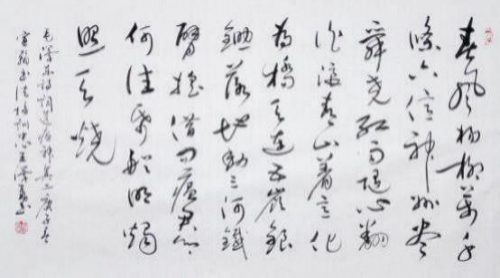 春风杨柳萬千
条六亿神州尽
舜尧红雨随心翻
作浪青山着意化
为桥天连五岭银
锄落地动三河铁
臂摇借问瘟君欲
何往纸船明烛
照天烧
毛泽东诗词送瘟神其二庚子春
书法培训